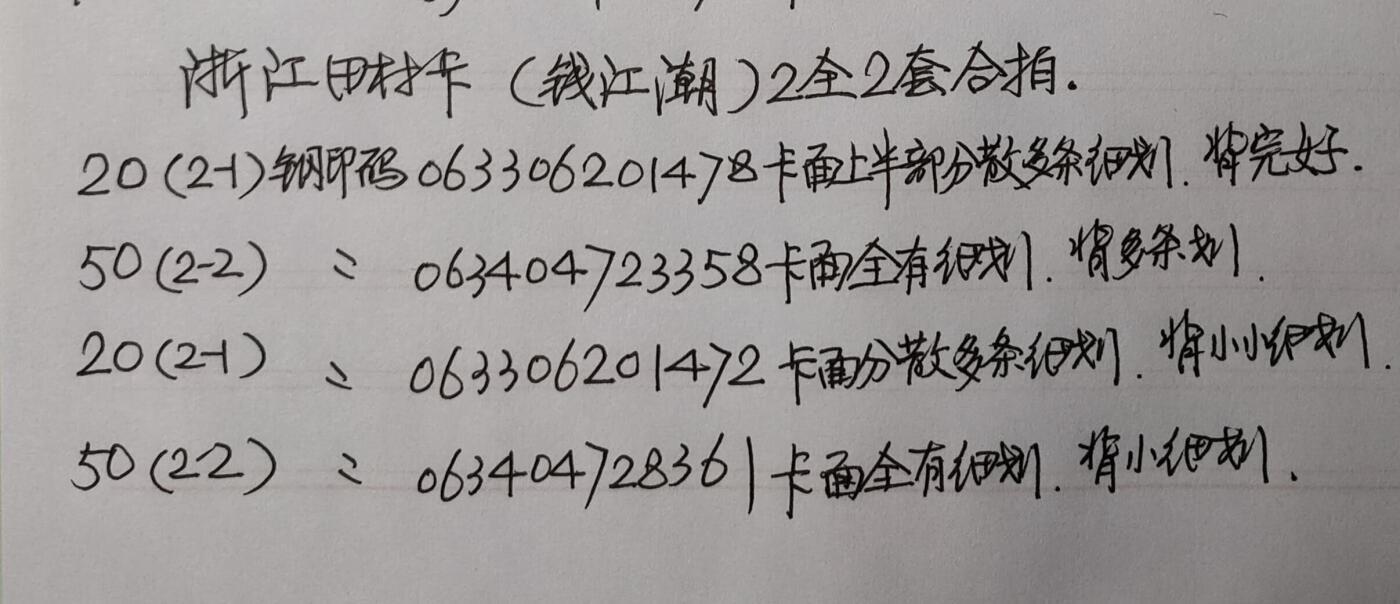 浙江田村卡（钱江潮）2全2套合拍.
20(2-1)钢印码063306201478卡面上半部分散多条细划.背完好.
50(2-2) 〃 063404723358卡面全有细划.背多条划.
20(2-1) 〃 063306201472卡面分散多条细划.背小小细划.
50(2-2) 〃 063404728361卡面全有细划.背小细划.